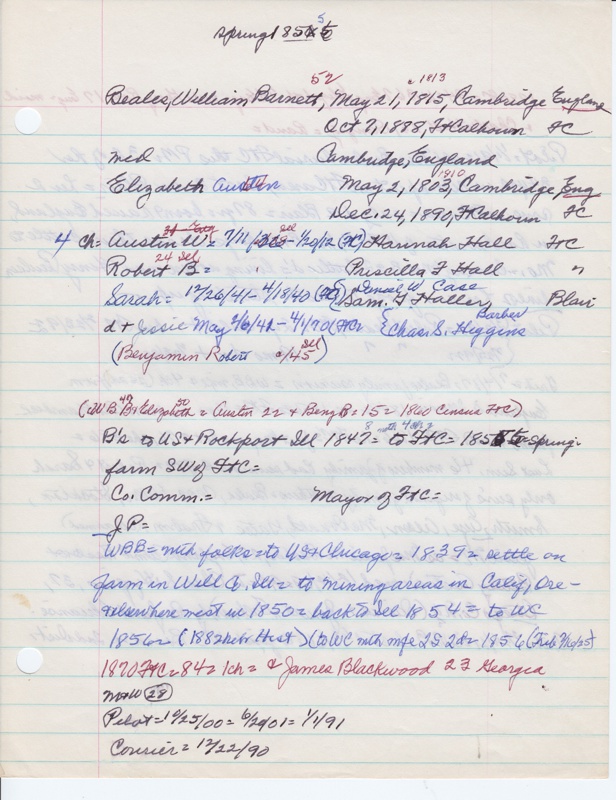 spring 1855
52 c 1813
Beales, William Barnett, May 21, 1815, Cambridge England
Oct 7, 1888, Ft Calhoun FC
md Cambridge, England
Elizabeth Austin 1810 May 2, 1803, Cambridge, Eng
Dec. 24, 1890, Ft Calhoun FC
4 ch = Austin W = 7/11/ - 1/20/12 (FtC) Hannah Hall FtC
24 Ill
Robert B = Priscilla F Hall "
Daniel W. Case
Sarah = 12/26/41 - 4/18/40 (FtC) Sam. T Haller, Blair
Barber
d + Jessie May 2/6/42 - 4/1/70 (FtC {Chas. S. Higgins
(Benjamin Robert c/45 Ill)
(WB 47 B & Elizabeth 50 = Austin 22 + Benj B = 15 = 1860 Census FtC)
B's to US & Rockport Ill 1847 = to FtC = 1855 spring =
farm SW of FtC =
Co. Comm. = Mayor of FtC =
J P =
WBB = with folks = to US & Chicago = 1839 = settle on
farm in Will Co. Ill = to mining areas in Calif, Ore -
& elsewhere west in 1850 = back to Ill 1854 = to WC
1856 = (1882 Nebr Hist) (to WC with wife 2S 2d = 1856
1870 FtC = 84 = 1 ch = & James Blackwood 23 Georgia
M & W (28)
Pilot = 10/25/00 = 6/29/01 = 1/1/91
Courier = 12/22/90